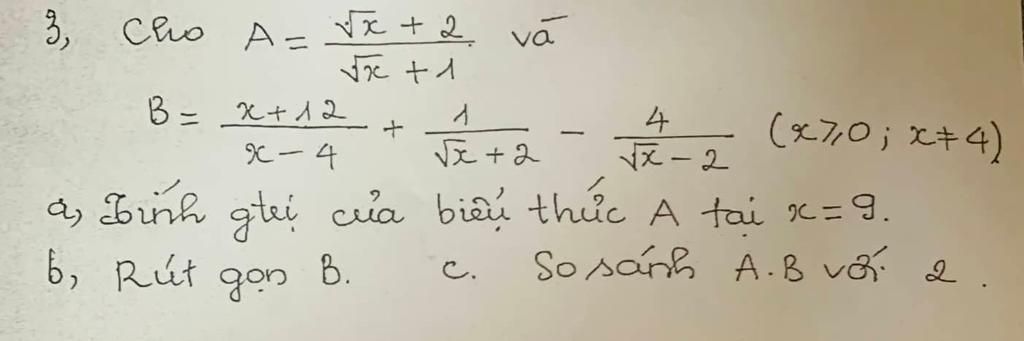 3, Cho A = \frac{\sqrt{x} + 2}{\sqrt{x} + 1} và
B = \frac{x + 12}{x - 4} + \frac{1}{\sqrt{x} + 2} - \frac{4}{\sqrt{x} - 2} (x ⩾ 0 ; x ≠ 4)
a, Tính gtrị của biểu thức A tại x = 9.
b, Rút gọn B. c. So sánh A.B với 2.